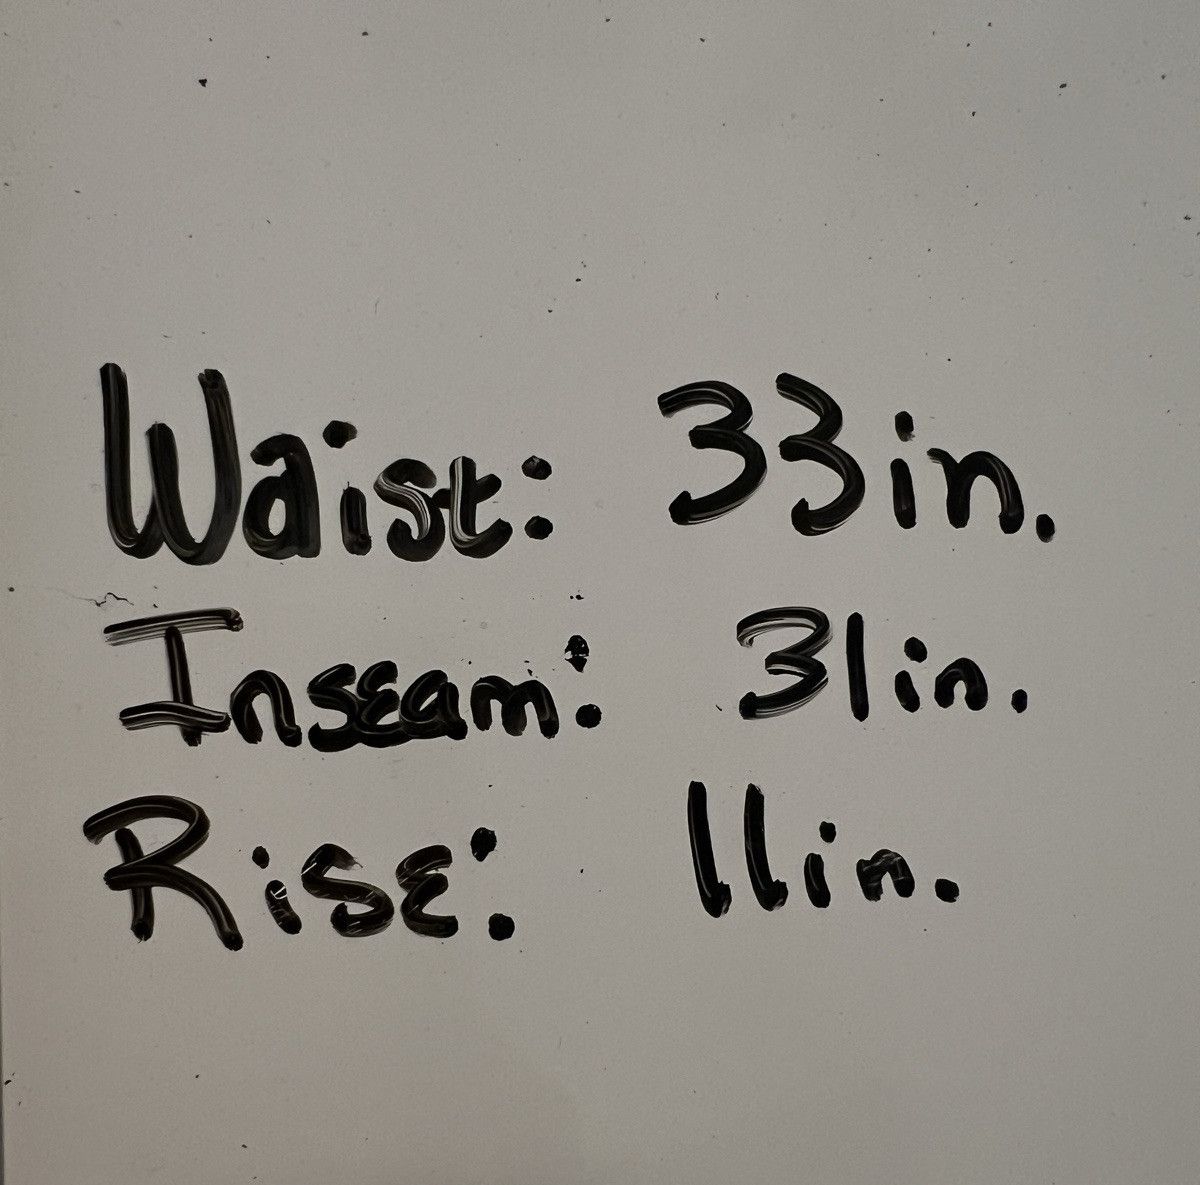 Waist: 33in.
Inseam: 31in.
Rise: 11in.